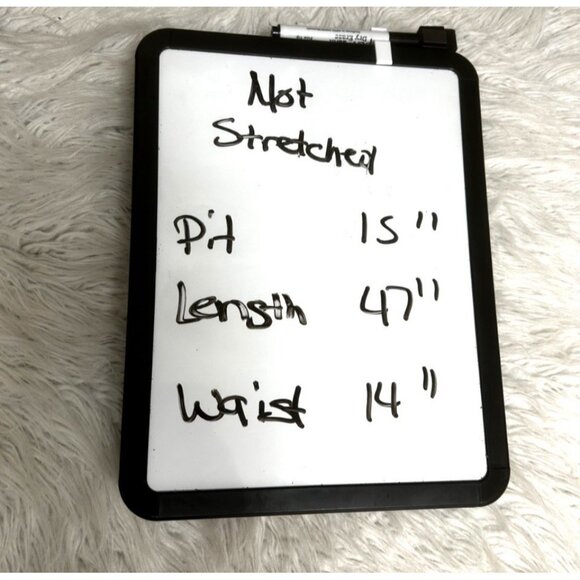 Not
Stretched
Pit 15"
Length 47"
Waist 14"